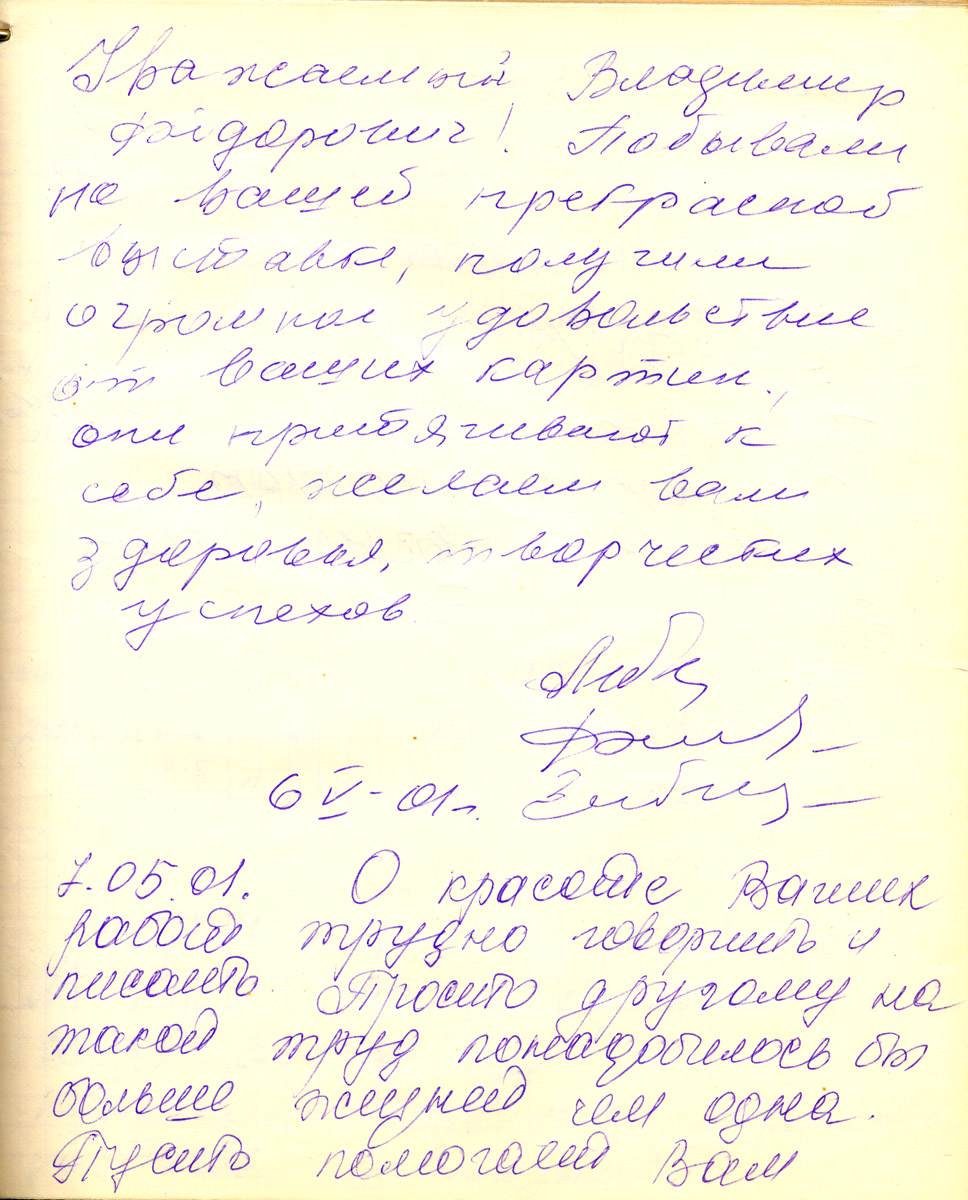 Уважаемый Владимир
Фёдорович! Побывали
на вашей прекрасной
выставке, получили
огромное удовольствие
от ваших картин.,
они притягивают к
себе, желаем вам
здоровья, творческих
успехов
6 V - 01г.
7.05.01. О красоте Ваших
работ трудно говорить и
писать. Просто другому на
такой труд понадобилось бы
больше жизней чем одна.
Пусть помогает Вам